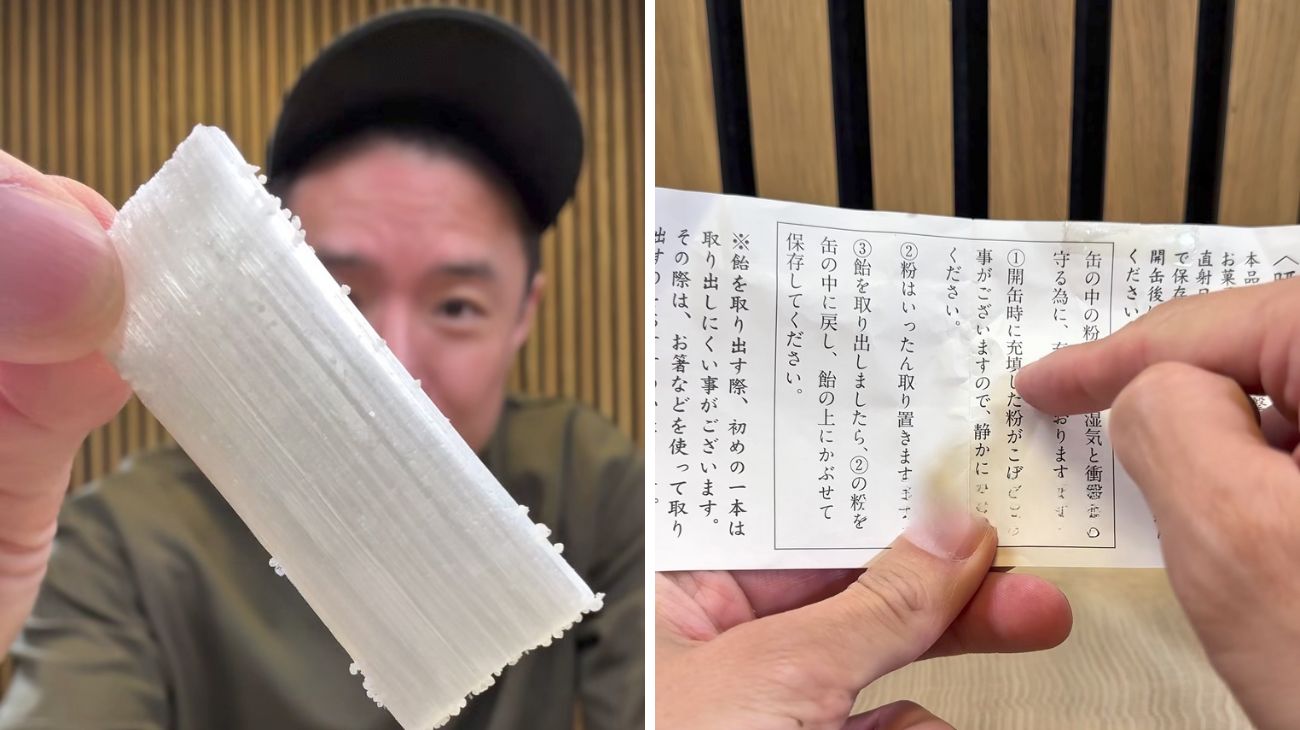 本品
お菓
直射日
で保存
開缶後
ください
缶の中の粉 湿気と衝撃
守る為に、 おります
①開缶時に充填した粉がこぼ
事がございますので、静かに
ください。
②粉はいったん取り置きます
③飴を取り出しましたら、②の粉を
缶の中に戻し、飴の上にかぶせて
保存してください。
※飴を取り出す際、初めの一本は
取り出しにくい事がございます。
その際は、お箸などを使って取り